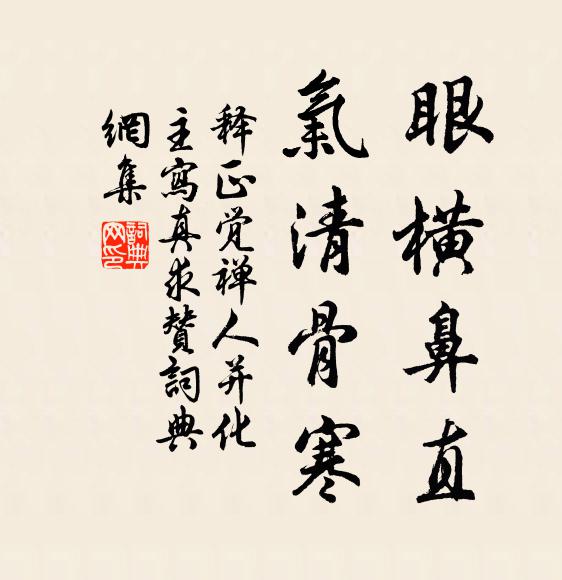 眼橫鼻直
氣清骨寒
释正觉禅人并化
主寫真求贊詞典
網集
詞典
网印